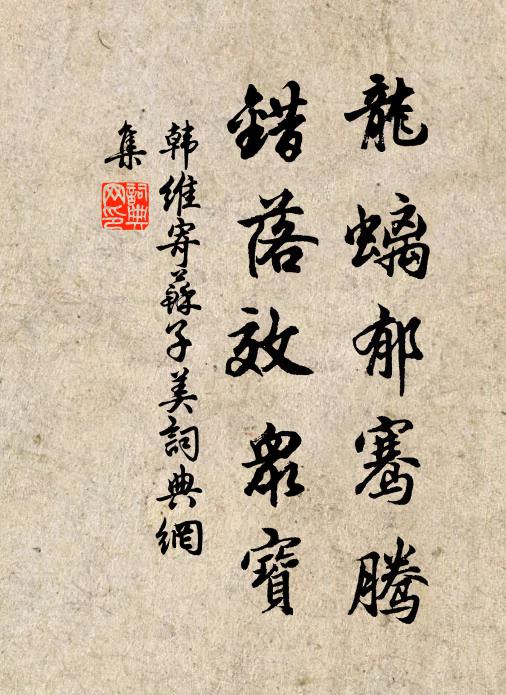 龍螭郁騫騰
錯落效衆寶
韩維寄蘇子美詞典網
集
詞典網印